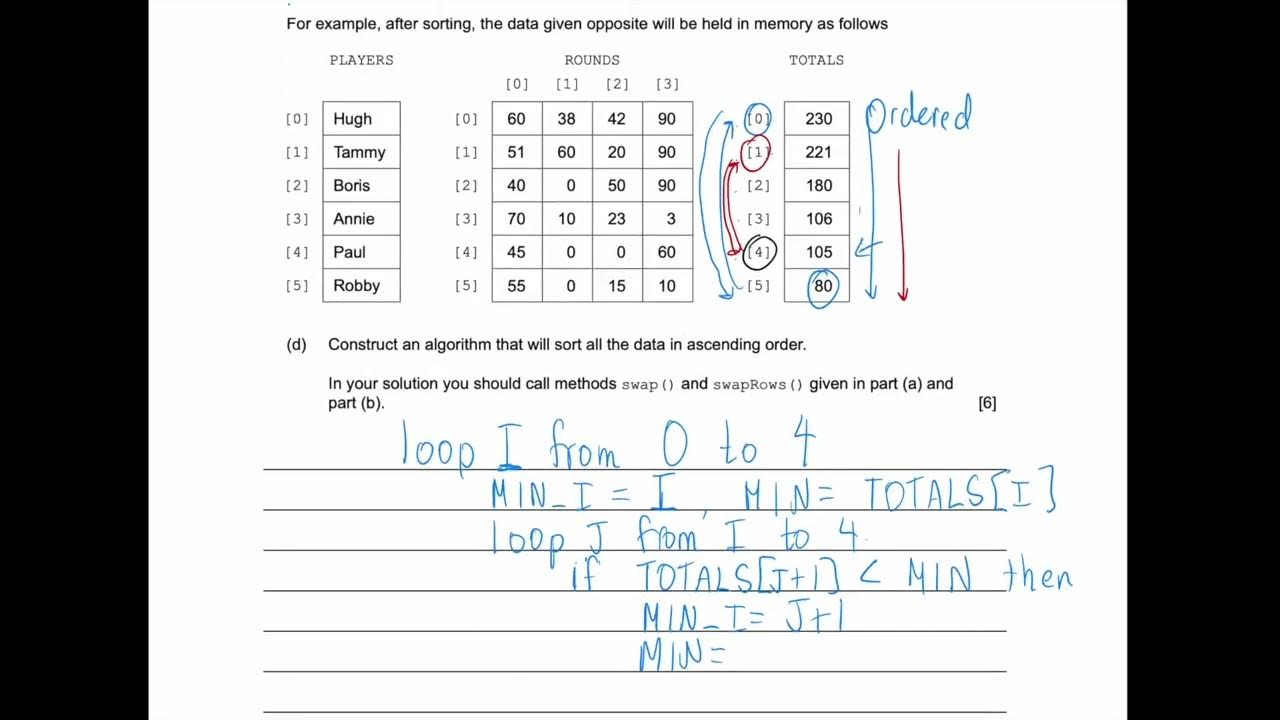 For example, after sorting, the data given opposite will be held in memory as follows
PLAYERS ROUNDS TOTALS
[0] [1] [2] [3]
[0] Hugh [0] 60 38 42 90 [0] 230 Ordered
[1] Tammy [1] 51 60 20 90 [1] 221
[2] Boris [2] 40 0 50 90 [2] 180
[3] Annie [3] 70 10 23 3 [3] 106
[4] Paul [4] 45 0 0 60 [4] 105
[5] Robby [5] 55 0 15 10 [5] 80
(d) Construct an algorithm that will sort all the data in ascending order.
In your solution you should call methods swap() and swapRows() given in part (a) and
part (b). [6]
loop I from 0 to 4
MIN_I = I, MIN= TOTALS[I]
loop J from I to 4
if TOTALS[J+1] < MIN then
MIN_I= J+1
MIN=